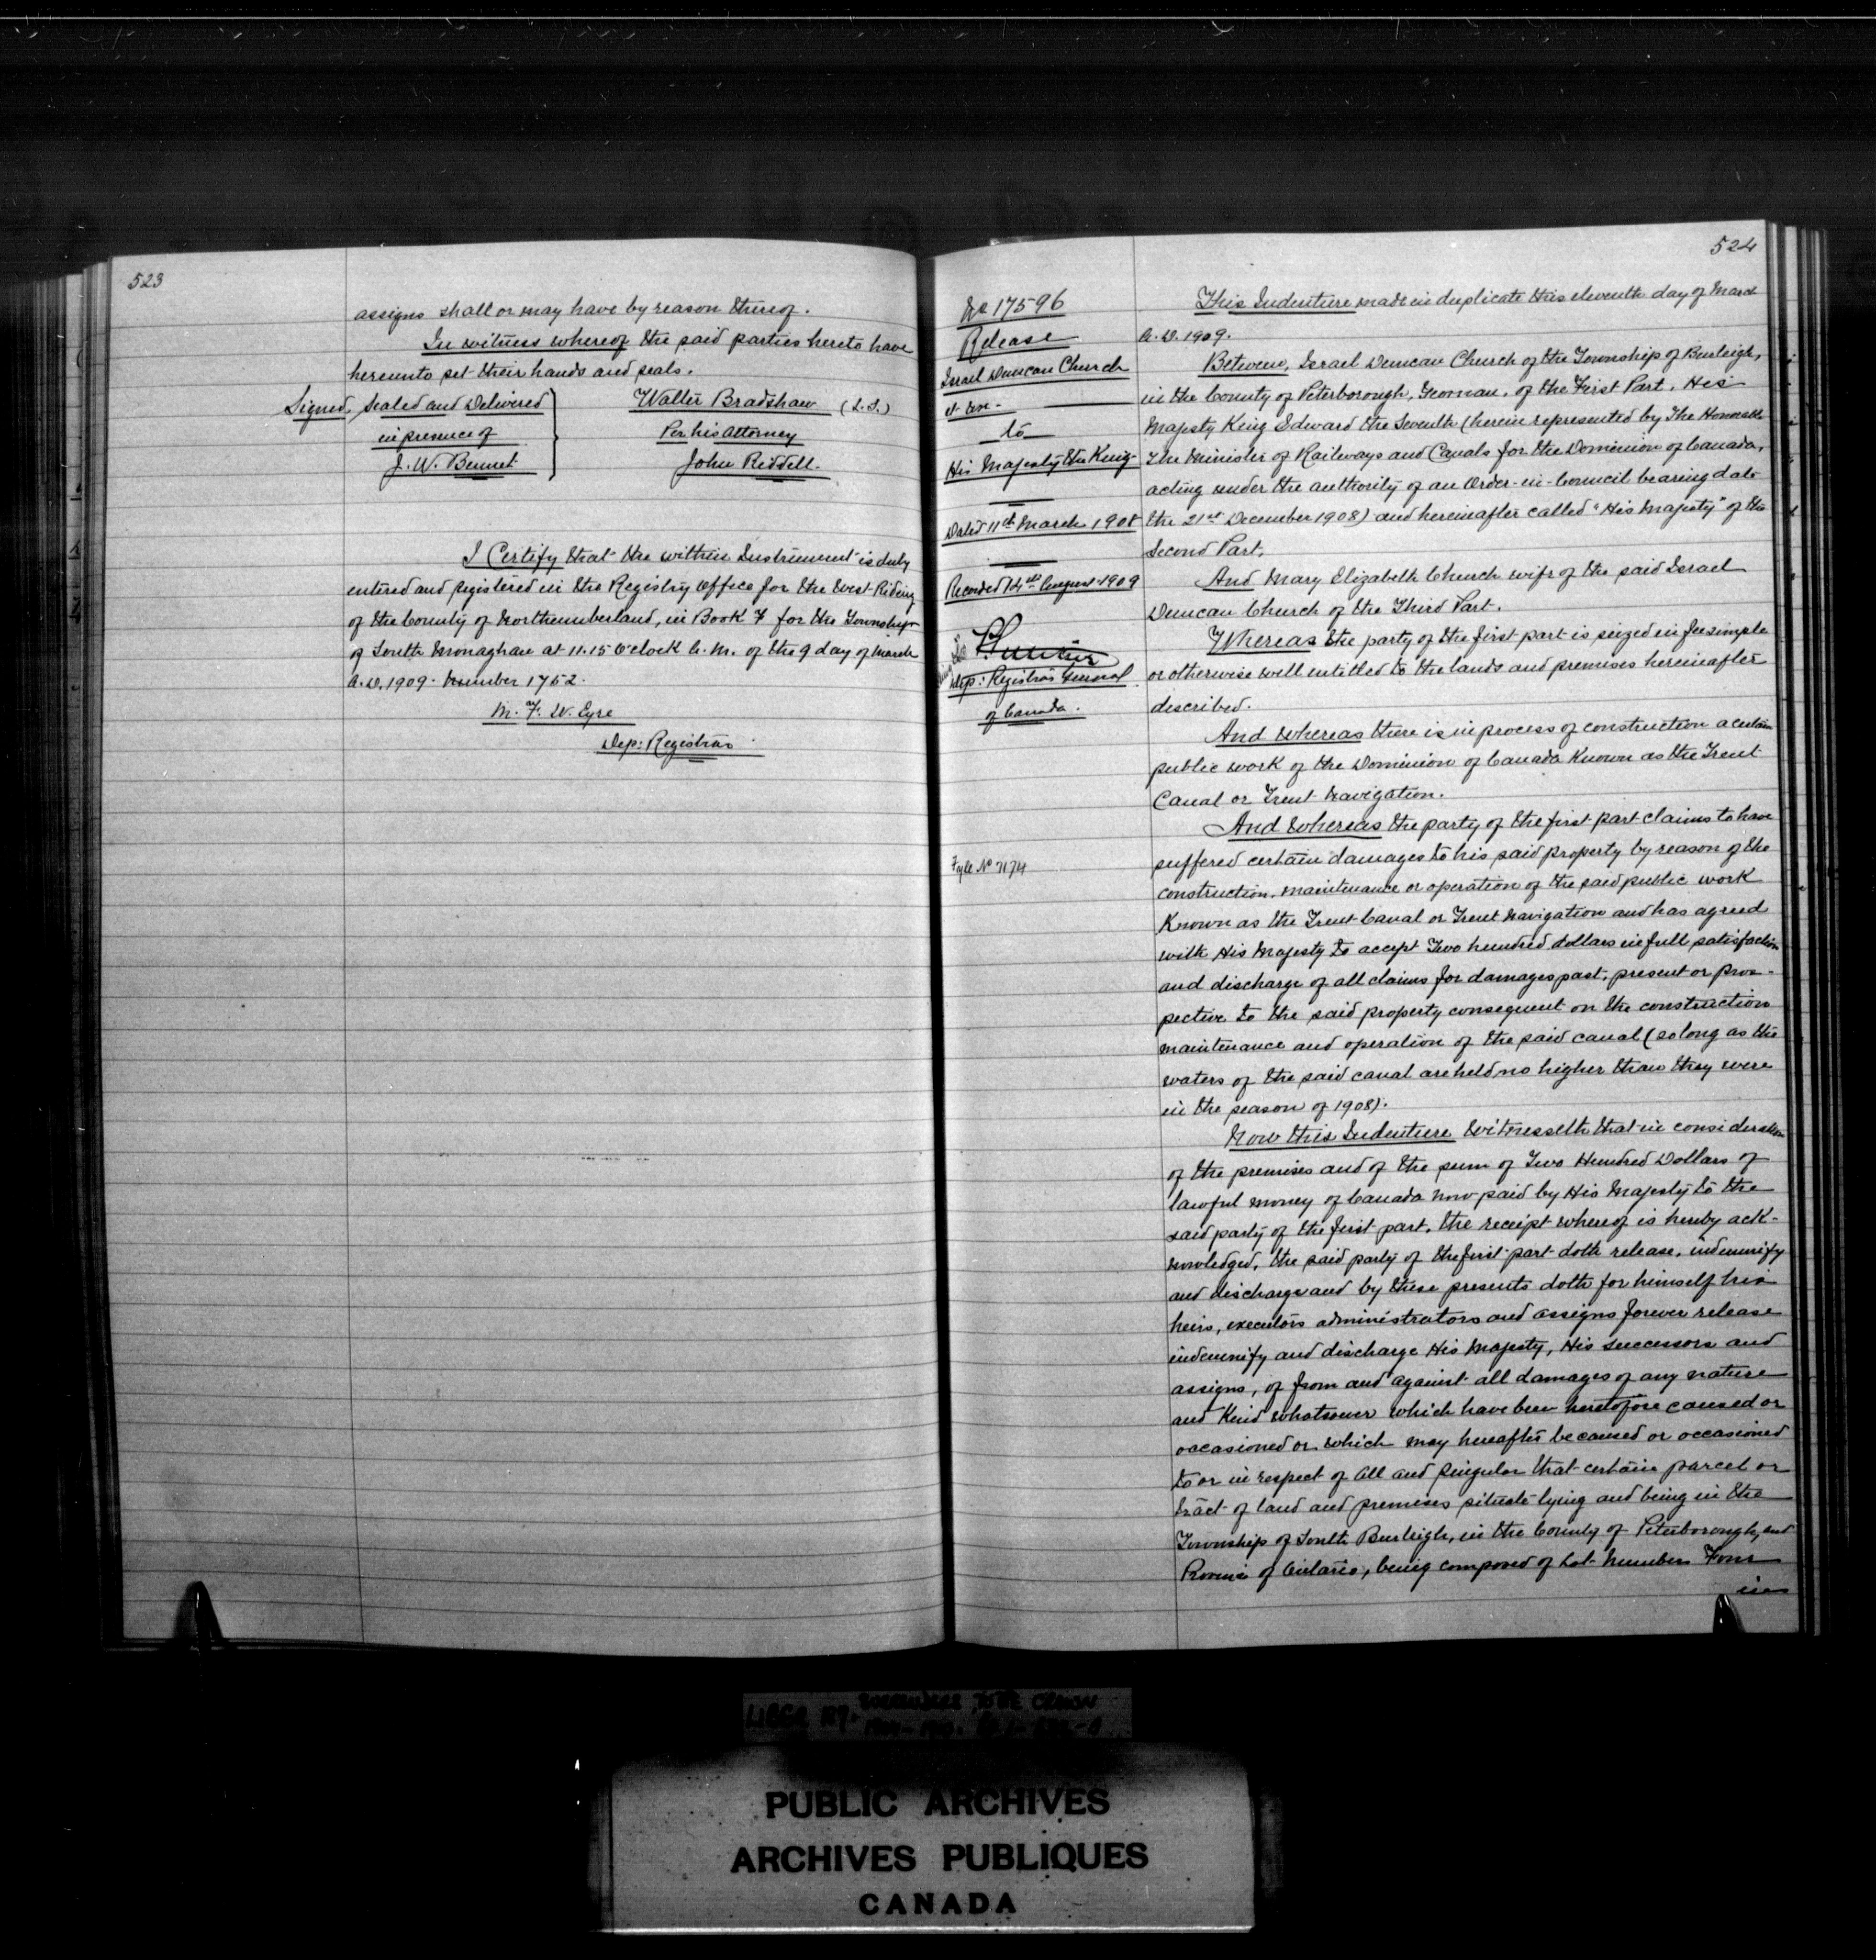 523
assigns shall or may have by reason thereof.
In witness whereof the said parties hereto have
hereunto set their hands and seals.
Signed, Sealed and Delivered
in presence of
J. W. Bennet
Walter Bradshaw (L.S.)
Per his Attorney
John Riddell.
I Certify that the within Instrument is duly
entered and registered in the Registry Office for the West Riding
of the County of Northumberland, in Book F for the Township
of South Monaghan at 11.15 O'clock A.M. of the 9 day of March
A.D. 1909. Number 1752.
M. F. W. Eyre
Dep: Registrar
524
No 17596
Release
Israel Duncan Church
et ux.
to
His Majesty the King
Dated 11th March 1908
Recorded 14th August 1909
Dep: Registrar General
of Canada.
Fyle No 7174
This Indenture made in duplicate this eleventh day of March
A.D. 1909.
Between, Israel Duncan Church of the Township of Burleigh,
in the County of Peterborough, Yeoman, of the First Part. His
Majesty King Edward the Seventh (herein represented by The Honorable
The Minister of Railways and Canals for the Dominion of Canada,
acting under the authority of an Order-in-Council bearing date
the 21st December 1908) and hereinafter called "His Majesty" of the
Second Part.
And Mary Elizabeth Church wife of the said Israel
Duncan Church of the Third Part.
Whereas the party of the first part is seized in fee simple
or otherwise well entitled to the lands and premises hereinafter
described.
And whereas there is in process of construction a certain
public work of the Dominion of Canada Known as the Trent
Canal or Trent Navigation.
And whereas the party of the first part claims to have
suffered certain damages to his said property by reason of the
construction, maintenance or operation of the said public work
Known as the Trent Canal or Trent Navigation and has agreed
with His Majesty to accept Two hundred dollars in full satisfaction
and discharge of all claims for damages past, present or pros-
pective to the said property consequent on the construction
maintenance and operation of the said canal (so long as the
waters of the said canal are held no higher than they were
in the season of 1908).
Now this Indenture Witnesseth that in consideration
of the premises and of the sum of Two Hundred Dollars of
lawful money of Canada now paid by His Majesty to the
said party of the first part, the receipt whereof is hereby ack-
nowledged, the said party of the first part doth release, indemnify
and discharge and by these presents doth for himself his
heirs, executors administrators and assigns forever release
indemnify and discharge His Majesty, His successors and
assigns, of from and against all damages of any nature
and Kind whatsoever which have been heretofore caused or
occasioned or which may hereafter be caused or occasioned
to or in respect of All and Singular that certain parcel or
tract of land and premises situate lying and being in the
Township of South Burleigh, in the County of Peterborough, and
Province of Ontario, being composed of Lot Number Four
in
PUBLIC ARCHIVES
ARCHIVES PUBLIQUES
CANADA